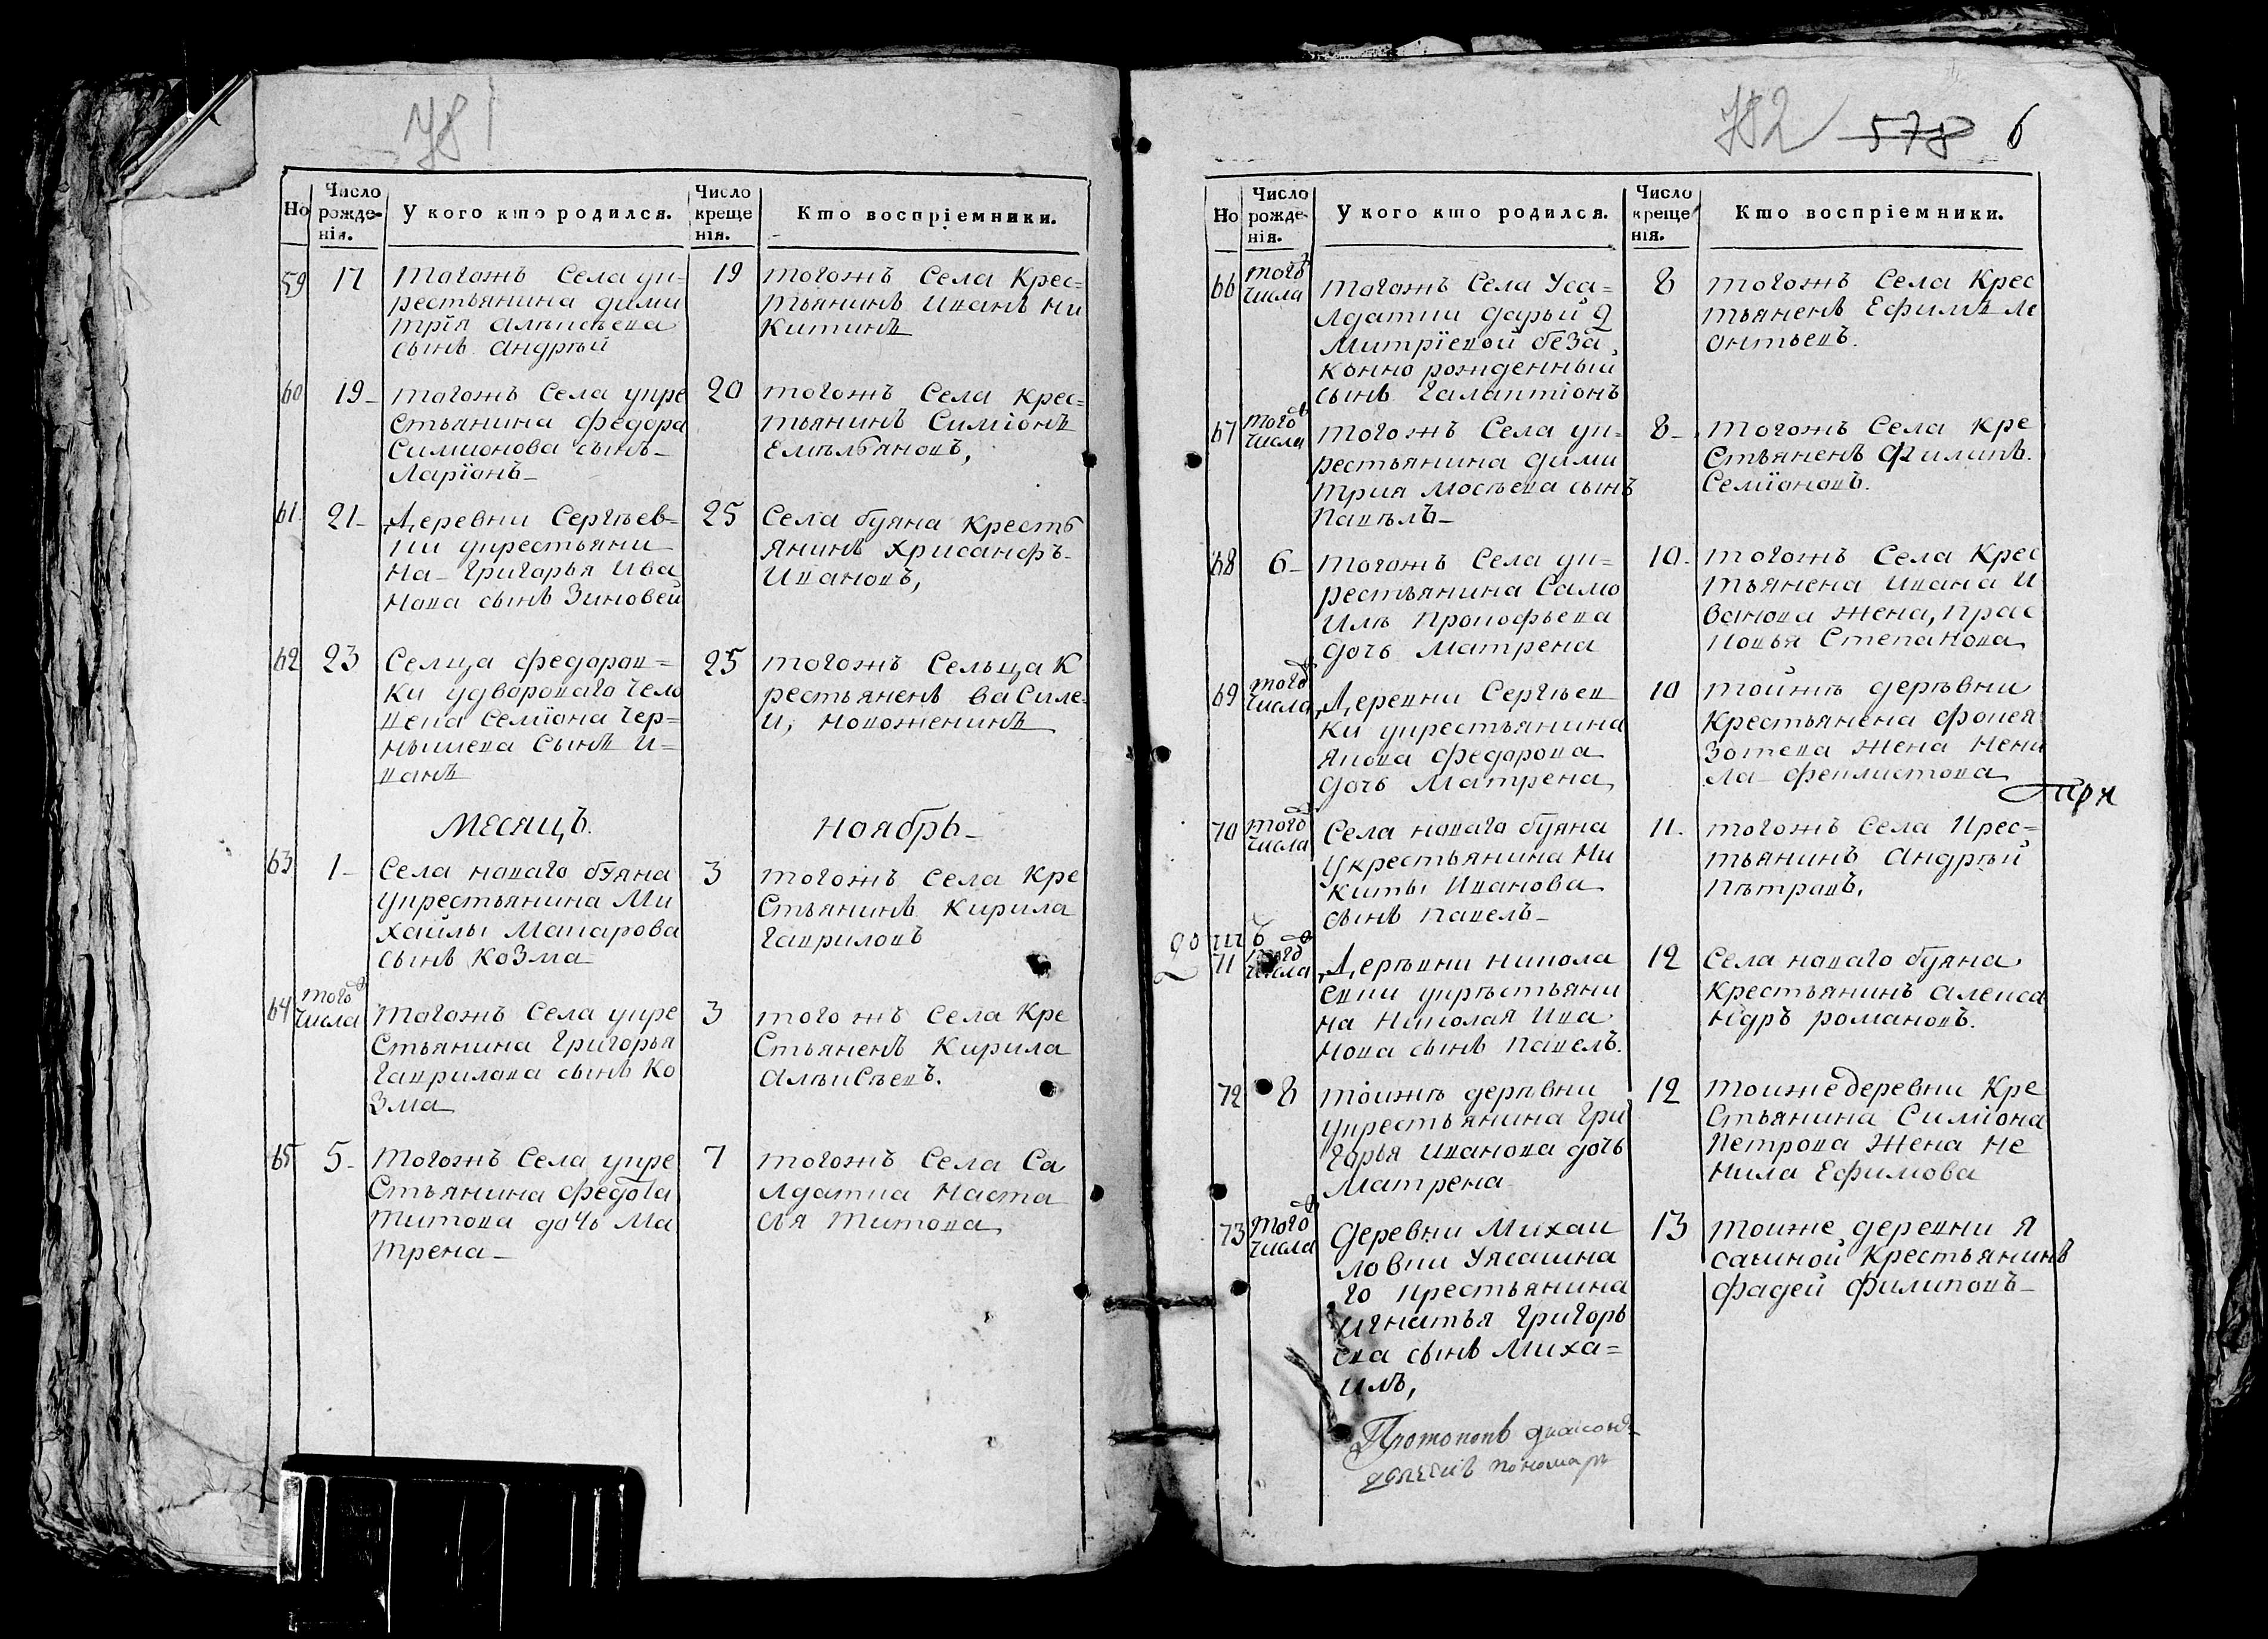 781
Но
Число рожденія.
У кого кто родился.
Число крещенія.
Кто воспріемники.
59
17
тогожъ Села ук=
рестьянина дими
трія Алѣксѣева
сынъ Андрѣй
19
тогожъ Села Крес=
тьянинъ Иванъ Ни
китинъ
60
19
тогожъ Села укре
стьянина федора
Симионова сынъ
Ларїонъ
20
тогожъ Села крес=
тьянинъ Симіонъ
Емѣльяновъ,
61
21
Деревни Сергѣев=
ки укрестьяни
на Григорья Ива
нова сынъ Зиновей
25
Села буяна кресть
янинъ Хрисанфъ
Ивановъ,
62
23
Селца федоров=
ки удвороваго чело
века Семїона Чер=
нышева сынъ И=
ванъ
25
тогожъ Сельца К
рестьяненъ Василе
й, новоженинъ
Месяцъ. Ноябрь
63
1
Села новаго буяна
укрестьянина Ми
хайлы Макарова
сынъ Козма
3
тогожъ Села Кре
стьянинъ Кирила
Гавриловъ
64
того числа
тогожъ Села укре
стьянина Григорья
Гаврилова сынъ Ко
зма
3
того жъ Села Кре
стьяненъ Кирила
Алѣксѣевъ.
65
5
тогожъ Села укре
стьянина федота
титова дочь Ма
трена
7
тогожъ Села Са
лдатка Наста
сья титова
782 578 6
Но
Число рожденія.
У кого кто родился.
Число крещенія.
Кто воспріемники.
66
того числа
тогожъ Села Уса=
лдатки дарьи Д
митрїевой беза
конно рожденный
сынъ Галактіонъ
8
тогожъ Села Крес
тьяненъ Ефимъ Ле
онтьевъ.
67
того числа
тогожъ Села ук=
рестьянина дими
трия Мосѣева сынъ
Павѣлъ
8
тогожъ Села кре
стьяненъ Филипъ
Семїоновъ.
68
6
тогожъ Села ук=
рестьянина Само
илы Прокофьева
дочь Матрена
10
тогожъ Села Крес
тьянена Ивана И
ванова жена, Прас
ковья Степанова
69
того числа
Деревни Сергѣев
ки укрестьянина
Якова федорова
дочь Матрена
10
тойжъ дерѣвни
Крестьянена фокея
Зотева жена Нени
ла феклистова
70
того числа
Села новаго буяна
Укрестьянина Ни
киты Иванова
сынъ павелъ
11
тогожъ Села Крес=
тьянинъ Андрѣй
Пѣтровъ,
71
того числа
Дерѣвни никола
евки укрѣстьяни
на Николая Ива
нова сынъ павелъ.
12
Села новаго буяна
крестьянинъ алекса
ндръ романовъ.
72
8
тоижъ дерѣвни
укрестьянина Гри
горья Иванова дочь
Матрена
12
тоиже деревни Кре
стьянина Симіона
Петрова жена Не
нила Ефимова
73
того числа
Деревни Михаи
ловки Уясашна
го крестьянина
Игнатья Григорь
ева сынъ Миха=
илъ,
13
тоиже деревни я
сашной Крестьянинъ
фадей филиповъ
Протопопъ
пономарь